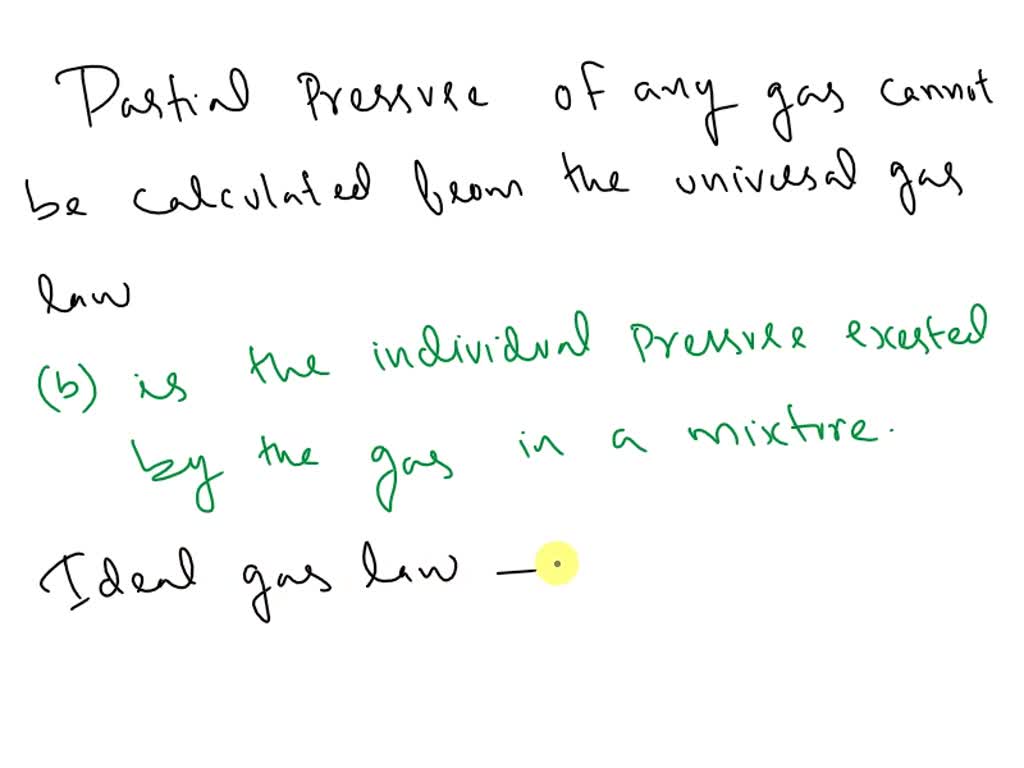 Partial Pressure of any gas cannot
be calculated from the universal gas
law
(b) is the individual pressure exerted
by the gas in a mixture.
Ideal gas law —